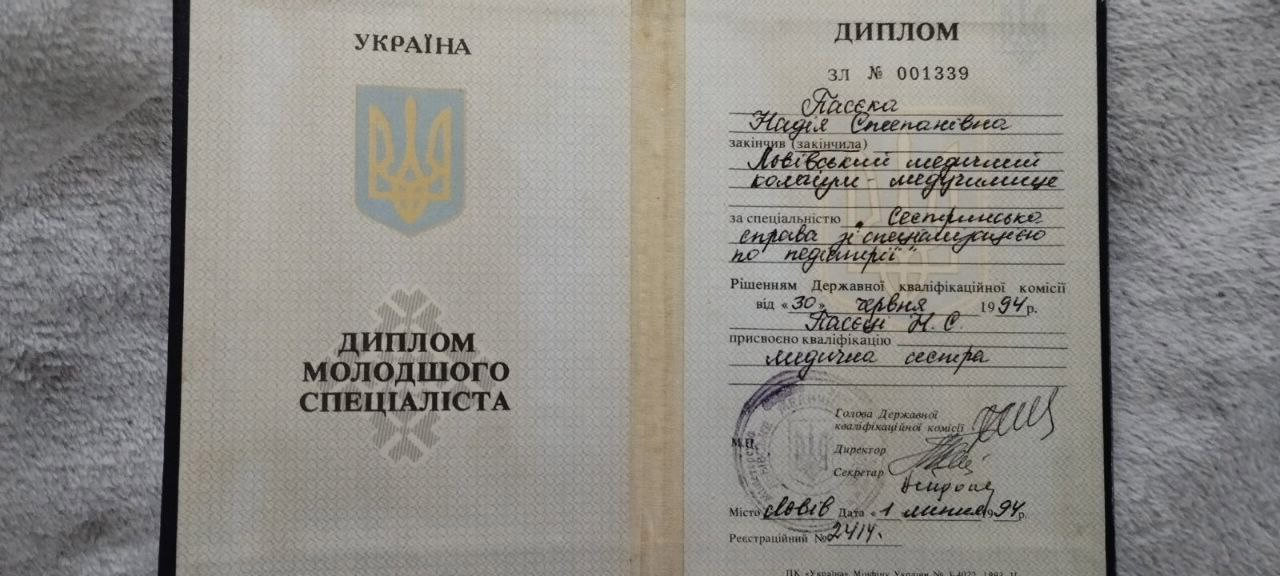 УКРАЇНА
ДИПЛОМ
МОЛОДШОГО
СПЕЦІАЛІСТА
ДИПЛОМ
ЗЛ № 001339
Пасєка
Надія Степанівна
закінчив (закінчила)
Львівський медичний
коледж - медучилище
за спеціальністю „Сестринська
справа зі спеціалізацією
по педіатрії"
Рішенням Державної кваліфікаційної комісії
від «30» червня 1994р.
Пасєці Н. С.
присвоєно кваліфікацію
медична сестра
Голова Державної
кваліфікаційної комісії
М.П.
Директор
Секретар
Місто Львів Дата «1 липня 1994р.
Реєстраційний № 2414.